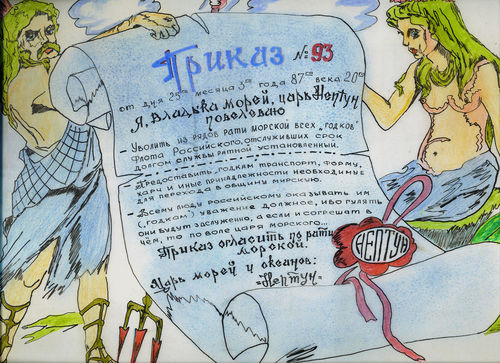 Приказ № 93
от дня 25го месяца 3го года 87го века 20го
Я, Владыка морей, царь Нептун
повелеваю
- Уволить из рядов рати морской всех „годков"
флота Российского, отслуживших срок
долгой службы ратной установленный.
- Предоставить „годкам" транспорт, форму,
харч и иные принадлежности необходимые
для перехода в общину мирскую.
- Всему люду российскому оказывать им
(„годкам") уважение должное, ибо гулять
они будут заслуженно, а если и согрешат в
чём, то по воле царя морского...
Приказ огласить по рати
морской.
Царь морей и океанов:
=Нептун=
НЕПТУН